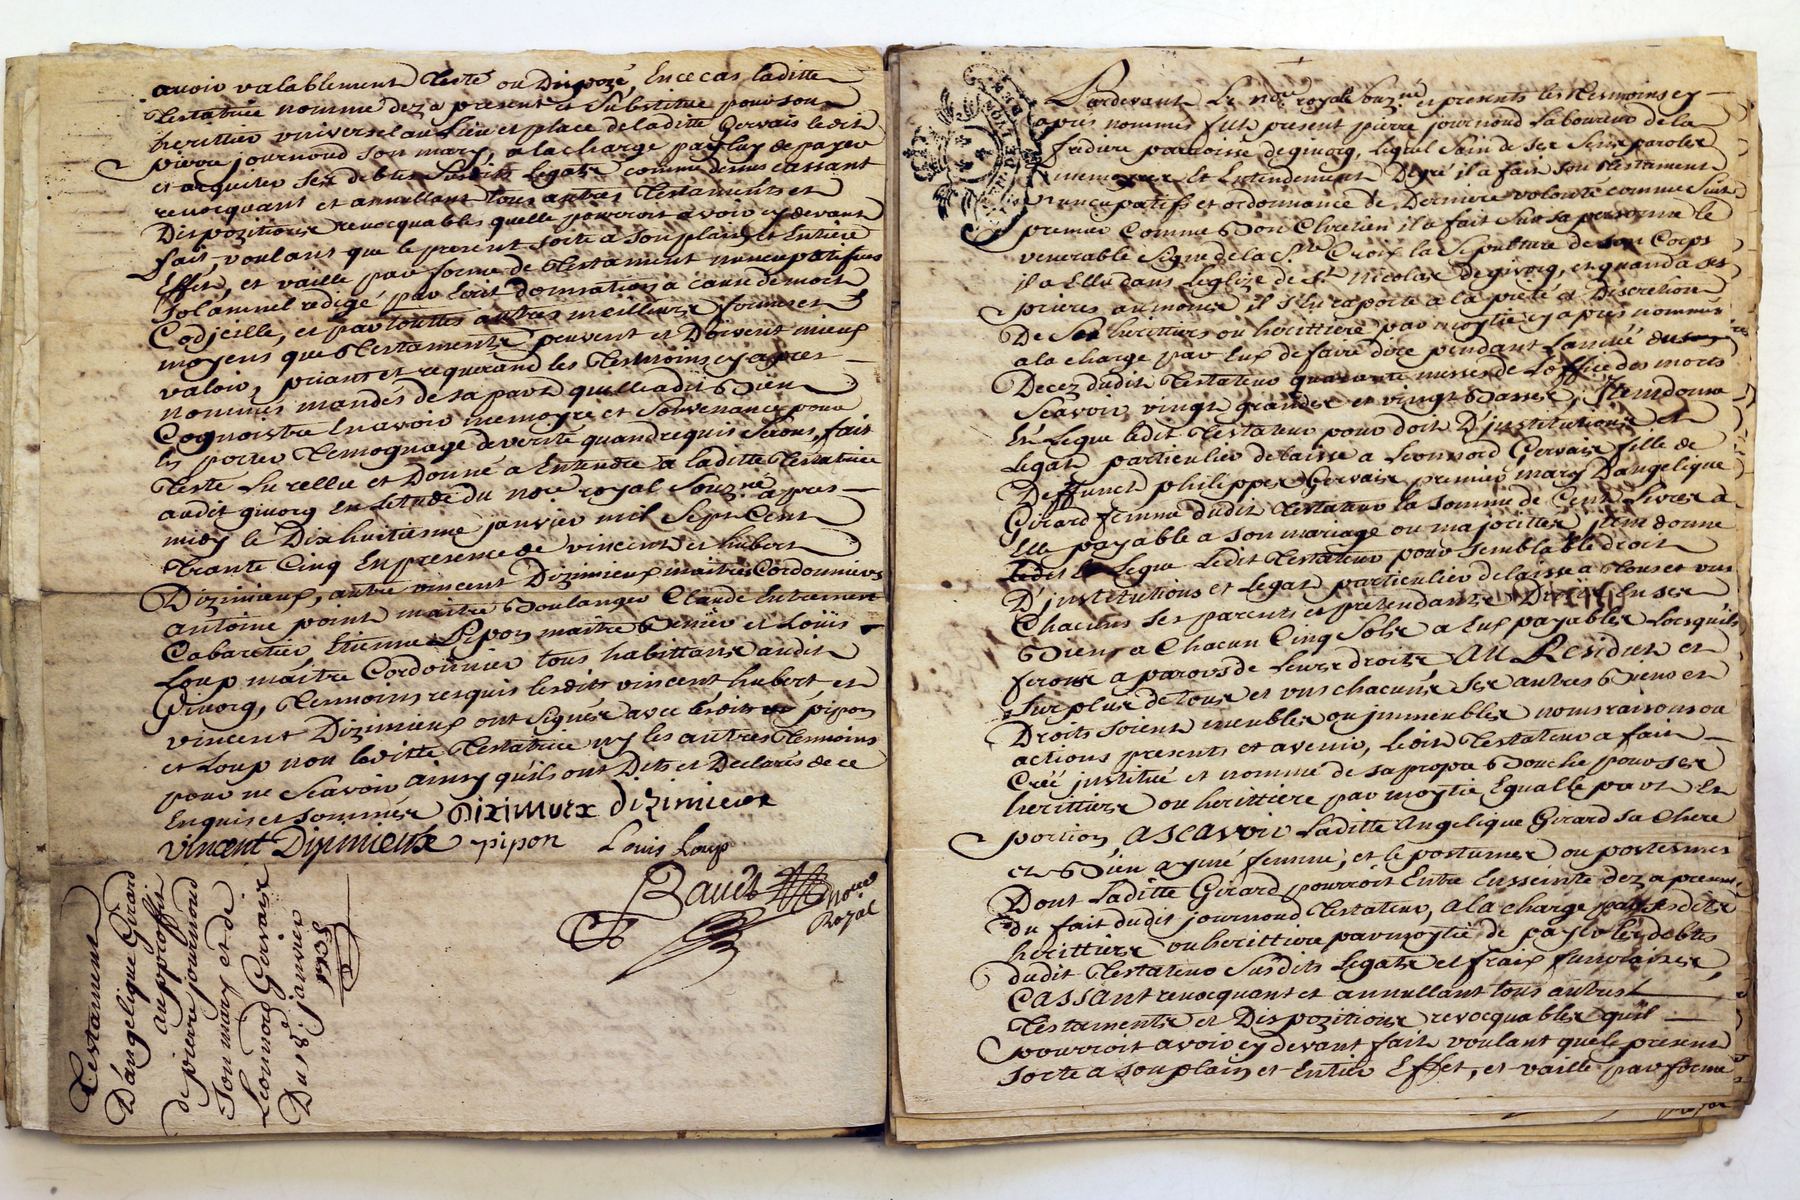 avoir valablement Testé ou Dispozé, En ce cas laditte
Testatrice nomme dez a present et Substitue pour son
heritier universel au Lieu et place de laditte Gervais ledit
pierre journoud son mary, a la charge par luy de payer
et acquiter ses debtes Susdits Legats comme dessus cassant
revocquant et annullant tous autres Testaments et
Dispozitions revocquables quelle pourroit avoir cy devant
fait, voulant que le present sorte a son plain et Entiere
Effet, et vaille par forme de Testament nuncupatif
solamnel redigé par Ecrit donnation a cause de mort
Codjcille, et par touttes autres meilleurs formes et
moyens que Testaments peuvent et Doivent mieux
valoir, priant et requerand les Tesmoins cy apres
nommés mandés de sa part quelle a dit Bien
Cognoistre En avoir memoyre et Souvenance pour
En porter Temognage de verité quand requis Seront, fait
Testé Lu rellu et Donné a Entendre a laditte Testatrice
audit givorq En Letude du no.re royal Souz.né apres
midy le Dixhuitieme janvier mil Sept Cent
Trante Cinq En presence de vincent et hubert
Dizimieux, autre vincent Dizimieux maitres Cordonniers
antoine point maitre Boulanger Claude
Cabaretier Etienne Pipon maitre et Loüis
Loup maitre Cordonnier tous habittans audit
Givorq, Tesmoins requis lesdits vincent hubert et
vincent Dizimieux ont Signés avec lesdits pipon
et Loup non laditte Testatrice ny les autres Tesmoins
pour ne Scavoir ainsy quils ont Dits et Declarés de ce
Enquis et sommés Diximuex dizimieux
vincent Dizimieux pipon Louis Loup
Baudt No.re
Royal
Testament
D'angelique Girard
au proffit
de pierre journoud
Son mary et de
Leonnord Gervais
Du 18.e janvier
1735
Pardevant Le no.re royal souz.né et presents les Tesmoins cy
apres nommés fut present pierre journoud Laboureur de la
fredure parroisse de givorq, Lequel Sain de Ses Sens parolles
memoyres et Entendement De gré il a fait son Testament
nuncupatif et ordonnance de Derniere volonté comme Suit
premier Comme Bon Chretien il a fait Sur sa personne le
venerable Signe de la S.te Croix la Sepulture de son Corps
il a Ellu dans Leglize de S.t Nicolas de givorq, et quand a ses
prieres aumones il s'en raporte a la pieté et Discretion
De Ses herittiers ou herittiere par moytié cy apres nommés
a la charge par Eux de faire dire pendant Lanné du
Decez dudit Testateur quarante messes de Loffice des morts
Scavoir vingt grandes et vingt Basses, Jtem donne
Et Legue ledit Testateur pour doit D'jnstitutions et
Legat particulier delaisse a Leonnord Gervais fille de
Deffunct philippes Gervais premier mary D'angelique
Girard femme dudit Testateur la somme de Cent Livres a
Elle payable a son mariage ou majoritée jtem donne
Et Legue Ledit Testateur pour semblable droit
D'jnstitutions et Legat particulier delaisse a Tous et uns
Chacuns Ses parents et pretendants Droit En ses
Biens a Chacun Cinq Sols a Eux payables Lorsquils
feront a parois de leurs droits Au Residut et
surplus de tous et uns chacuns Ses autres Biens et
Droits soient meubles ou jmmeubles noms raisons ou
actions presents et avenir, ledit Testateur a fait
Créé jnstitué et nommé de sa propre Bouche pour ses
herittiers ou herittiere par moytié Egualle part Et
portion, Ascavoir Laditte Angelique Girard sa Chere
et Bien aymé femme, et le postumes ou postesmes
Dont Laditte Girard pourroit Entre Enseinte dez a present
du fait dudit journoud Testateur, a la charge par sesdits
herittiers ou herittiere par moytié de payer les debtes
dudit Testateur Susdits Legats et fraix funeraires
Cassant revocquant et annullant tous autres
Testaments et Dispozitions revocquables quil
pourroit avoir cy devant fait voulant que le present
sorte a son plain et Entier Effet, et vaille par forme